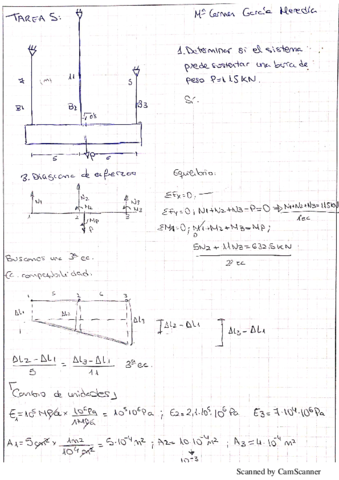 TAREA 5:
Mª Carmen García Heredia
1. Determinar si el sistema
puede sustentar una barra de
peso P=115KN.
Sí.
11
5
B2
B3
5
6
P
3. Diagrama de esfuerzos
Equilibrio.
N1
N2
P
ΣFx=0; —
ΣFy=0; N1+N2+N3-P=0 ⇒ N1+N2+N3=115KN
1ec
5N2 + 11N3=632,5KN
2ª ec
Buscamos una 3ª ec.
C. compatibilidad.
5 6
1 2 3
ΔL1
ΔL3
ΔL2-ΔL1
ΔL3-ΔL1
ΔL2-ΔL1 / 5 = ΔL3-ΔL1 / 11 3ª ec.
Cambio de unidades
E1=10⁵ MPa x 10⁶Pa / 1MPa = 10⁵·10⁶Pa; E2=2,1·10⁵·10⁶Pa E3=7·10⁴·10⁶Pa
A1=5cm² x 1m² / 10⁴cm² = 5·10⁻⁴m²; A2=10·10⁻⁴m²; A3=4·10⁻⁴m²
10⁻³
Scanned by CamScanner